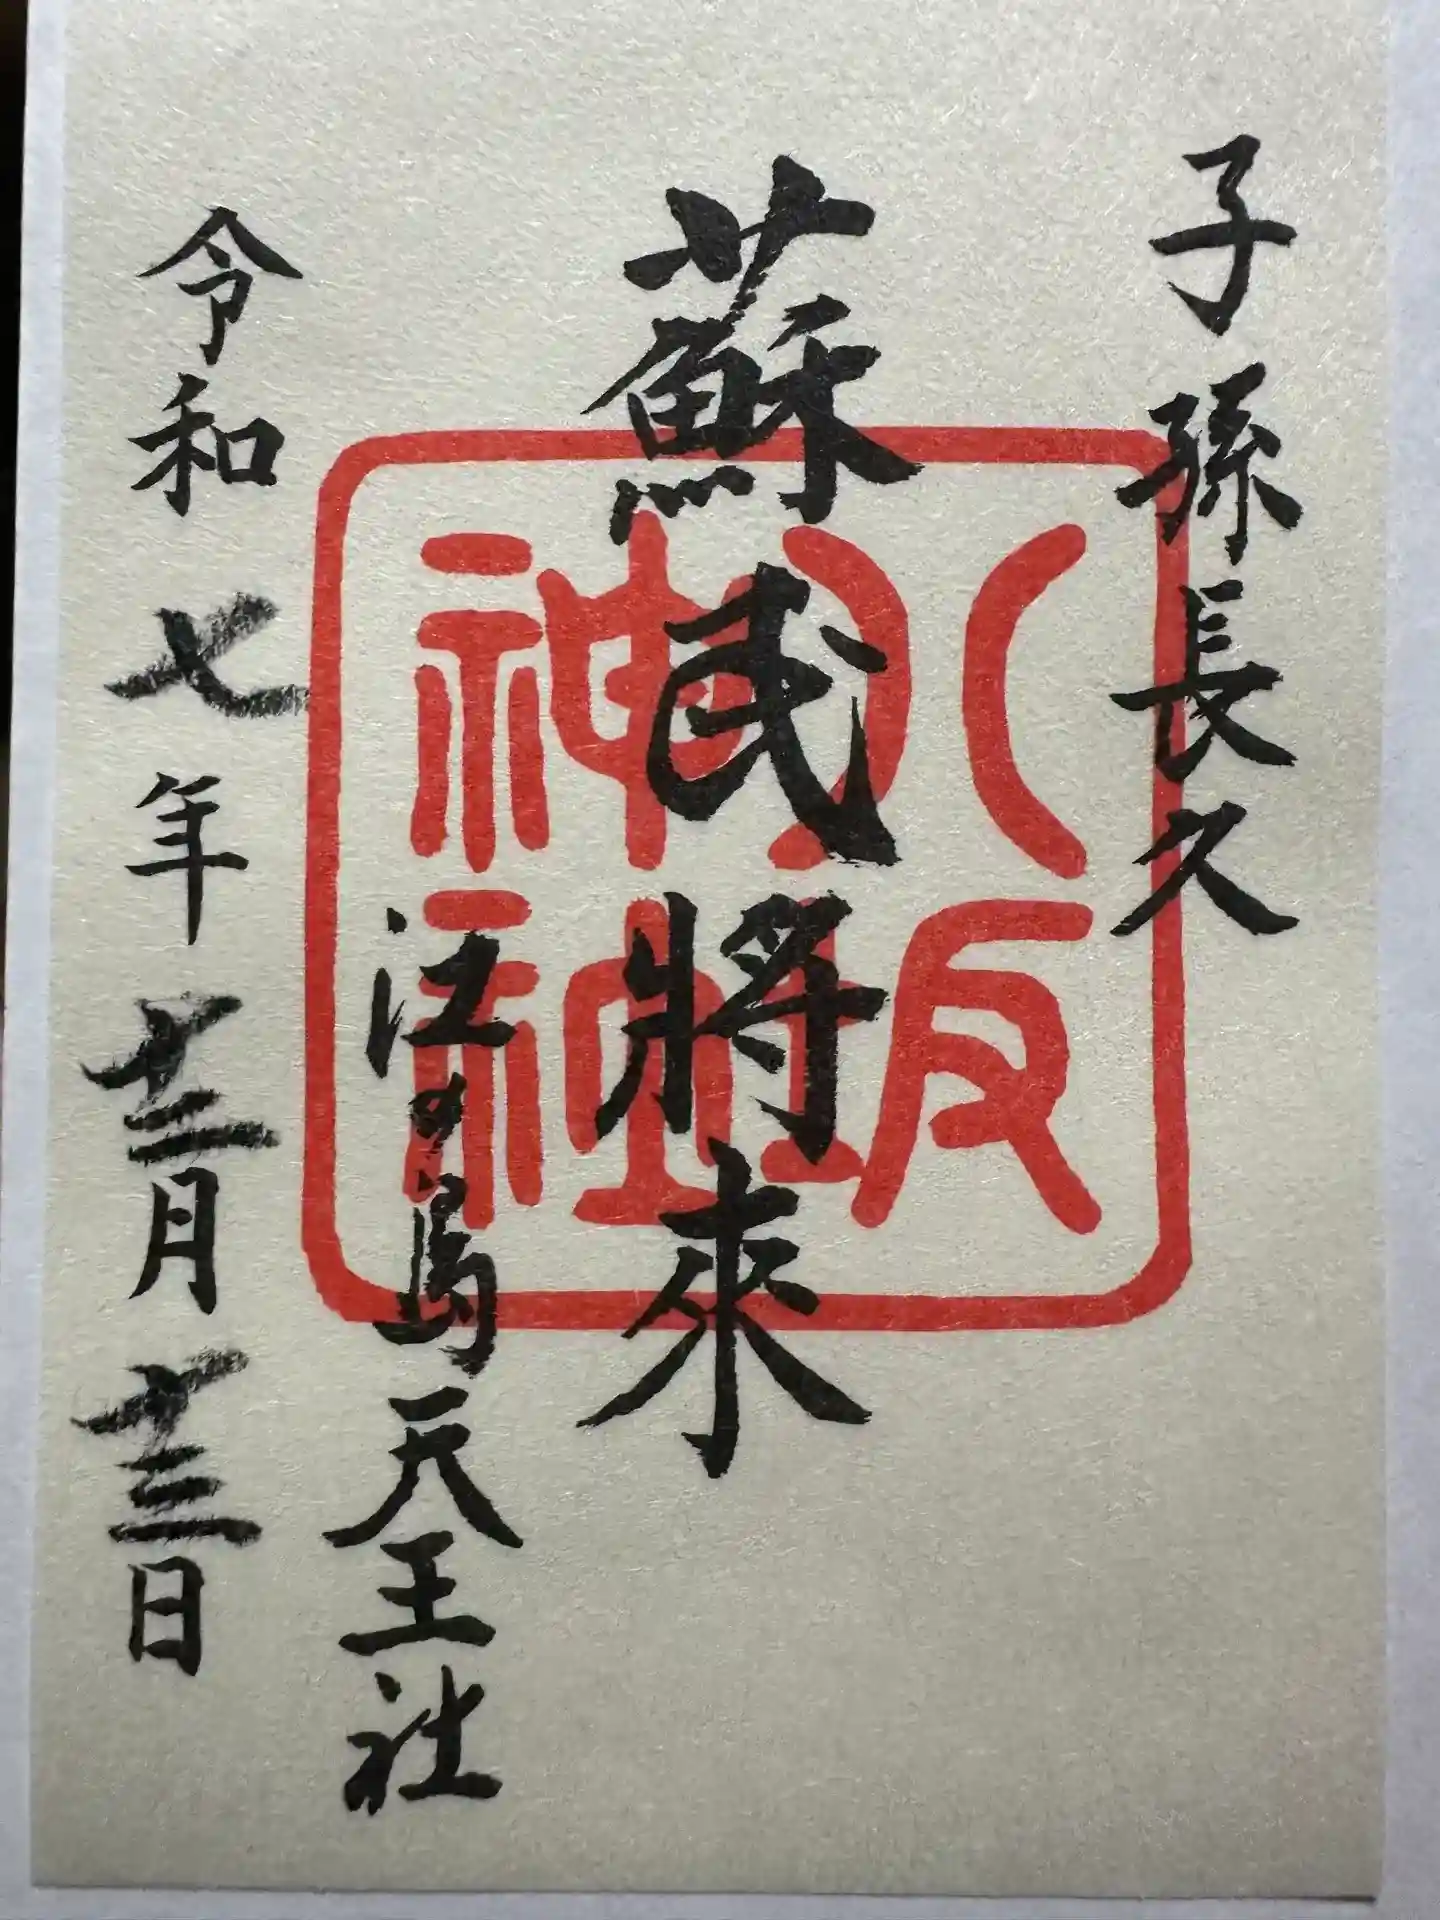 子孫長久
蘇民將來
八坂神社
江の島天王社
令和七年十二月十三日